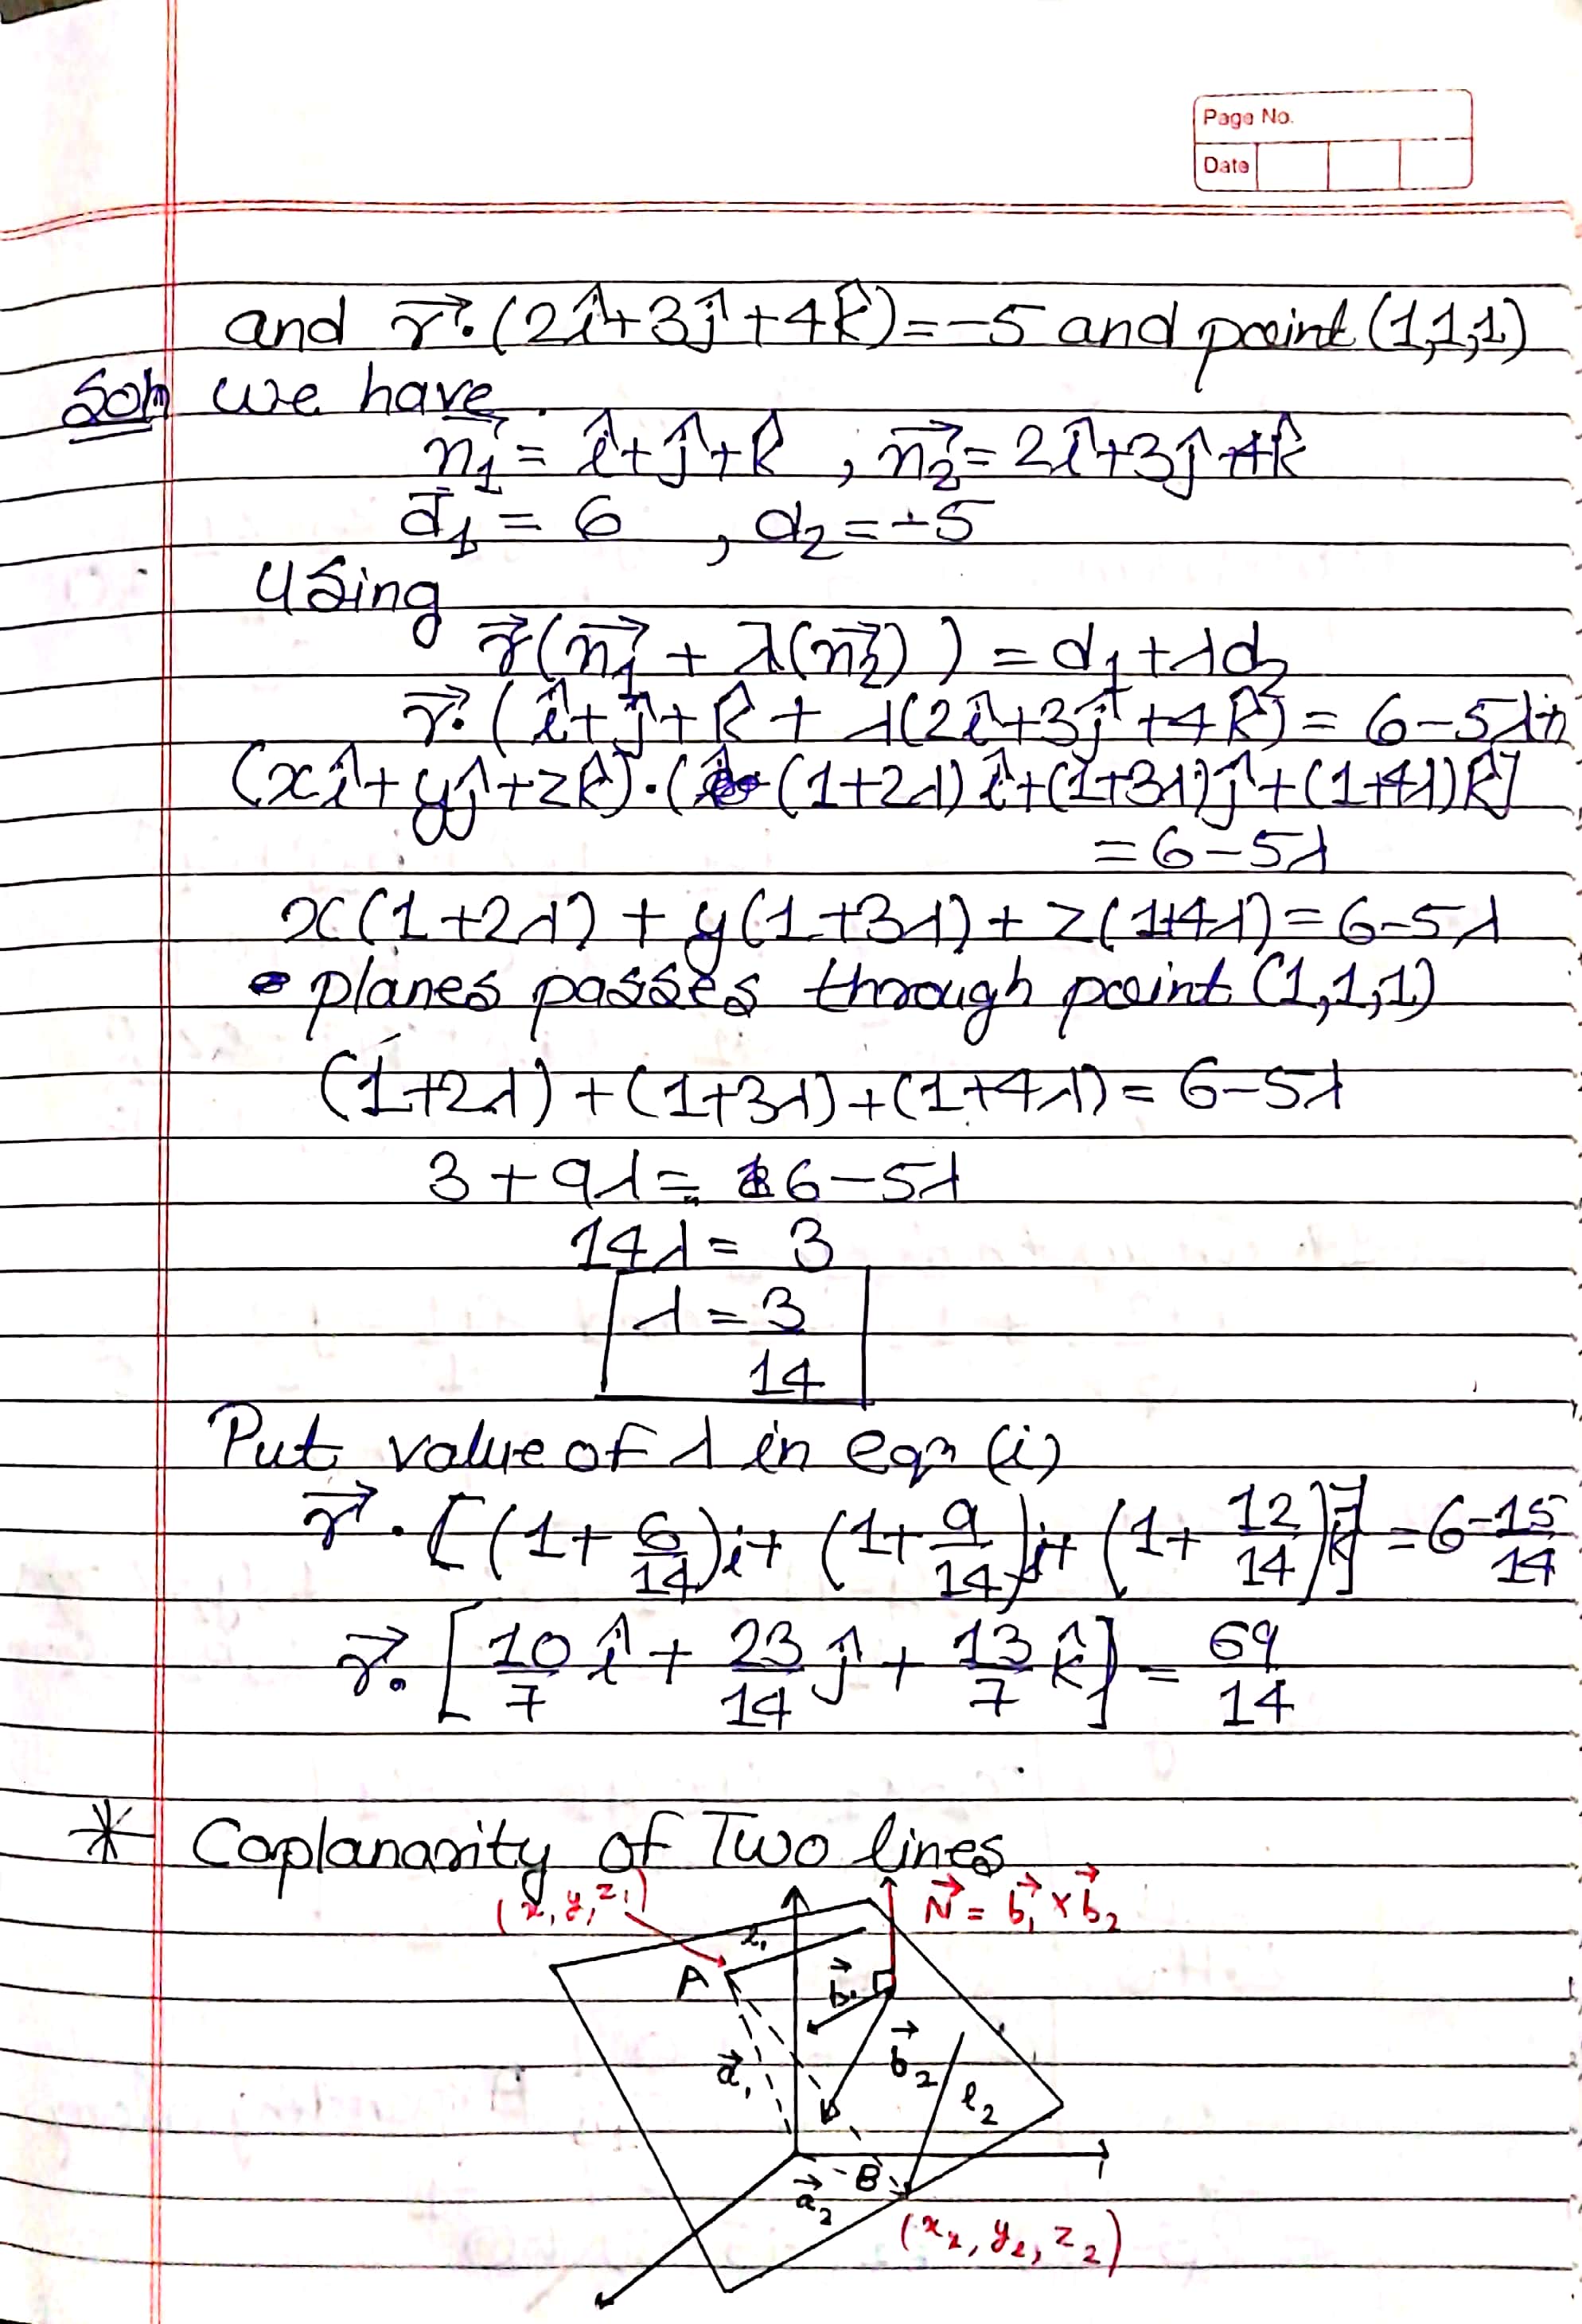 Page No.
Date
and r⃗.(2î+3ĵ+4k̂)=-5 and point (1,1,1)
Soln we have
n₁⃗ = î+ĵ+k̂ , n₂⃗ = 2î+3ĵ+4k̂
d₁ = 6 , d₂ = -5
Using
r⃗(n₁⃗ + λ(n₂⃗)) = d₁+λd₂
r⃗.(î+ĵ+k̂ + λ(2î+3ĵ+4k̂) = 6-5λ
(xî+yĵ+zk̂).((1+2λ)î+(1+3λ)ĵ+(1+4λ)k̂]
=6-5λ
x(1+2λ) + y(1+3λ) + z(1+4λ) = 6-5λ
planes passes through point (1,1,1)
(1+2λ)+(1+3λ)+(1+4λ) = 6-5λ
3+9λ = 6-5λ
14λ = 3
λ = 3/14
Put value of λ in eqn (i)
r⃗.[(1+6/14)i+(1+9/14)j+(1+12/14)k] = 6-15/14
r⃗.[10/7 î + 23/14 ĵ + 13/7 k̂] = 69/14
* Coplanarity of Two lines
(x, y, z₁) N⃗ = b₁⃗ × b₂⃗
l₁
A b₁⃗
a₁⃗ b₂⃗ l₂
a₂⃗ B
(x₂, y₂, z₂)